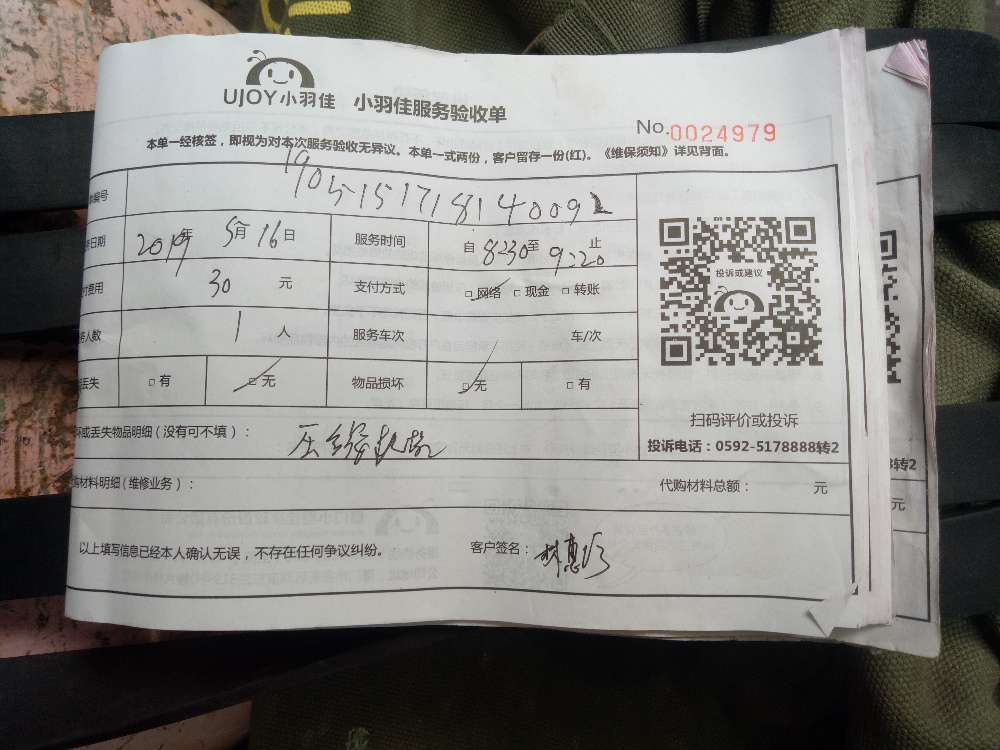 UJOY小羽佳 小羽佳服务验收单
No.0024979
本单一经核签，即视为对本次服务验收无异议。本单一式两份，客户留存一份(红)。《维保须知》详见背面。
编号 190515171814009
日期 2019年 5月 16日 服务时间 自 8:30至 9:20 止
费用 30 元 支付方式 □网络 □现金 □转账
人数 1 人 服务车次 车/次
丢失 □有 □无 物品损坏 □无 □有
投诉或建议
扫码评价或投诉
投诉电话：0592-5178888转2
或丢失物品明细(没有可不填)：
材料明细(维修业务)： 代购材料总额： 元
以上填写信息已经本人确认无误，不存在任何争议纠纷。 客户签名：林惠珍
转2
元